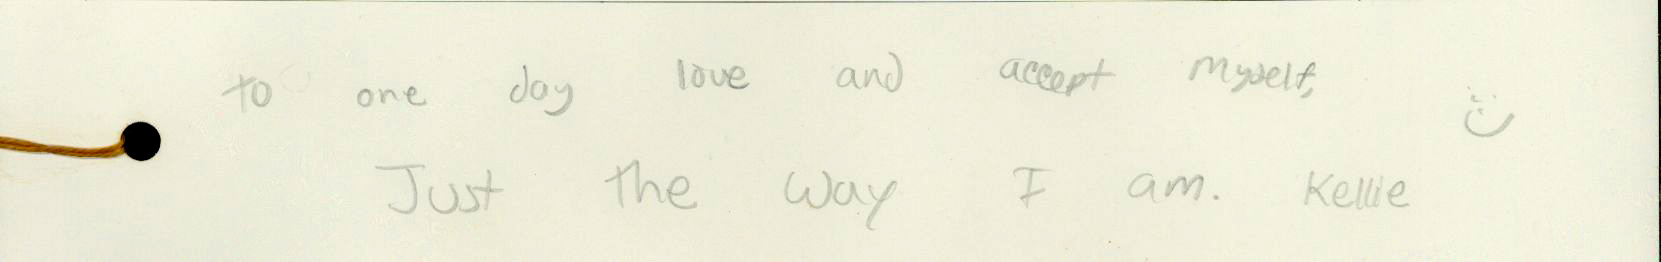 to one day love and accept myself, :)
Just the way I am. Kellie